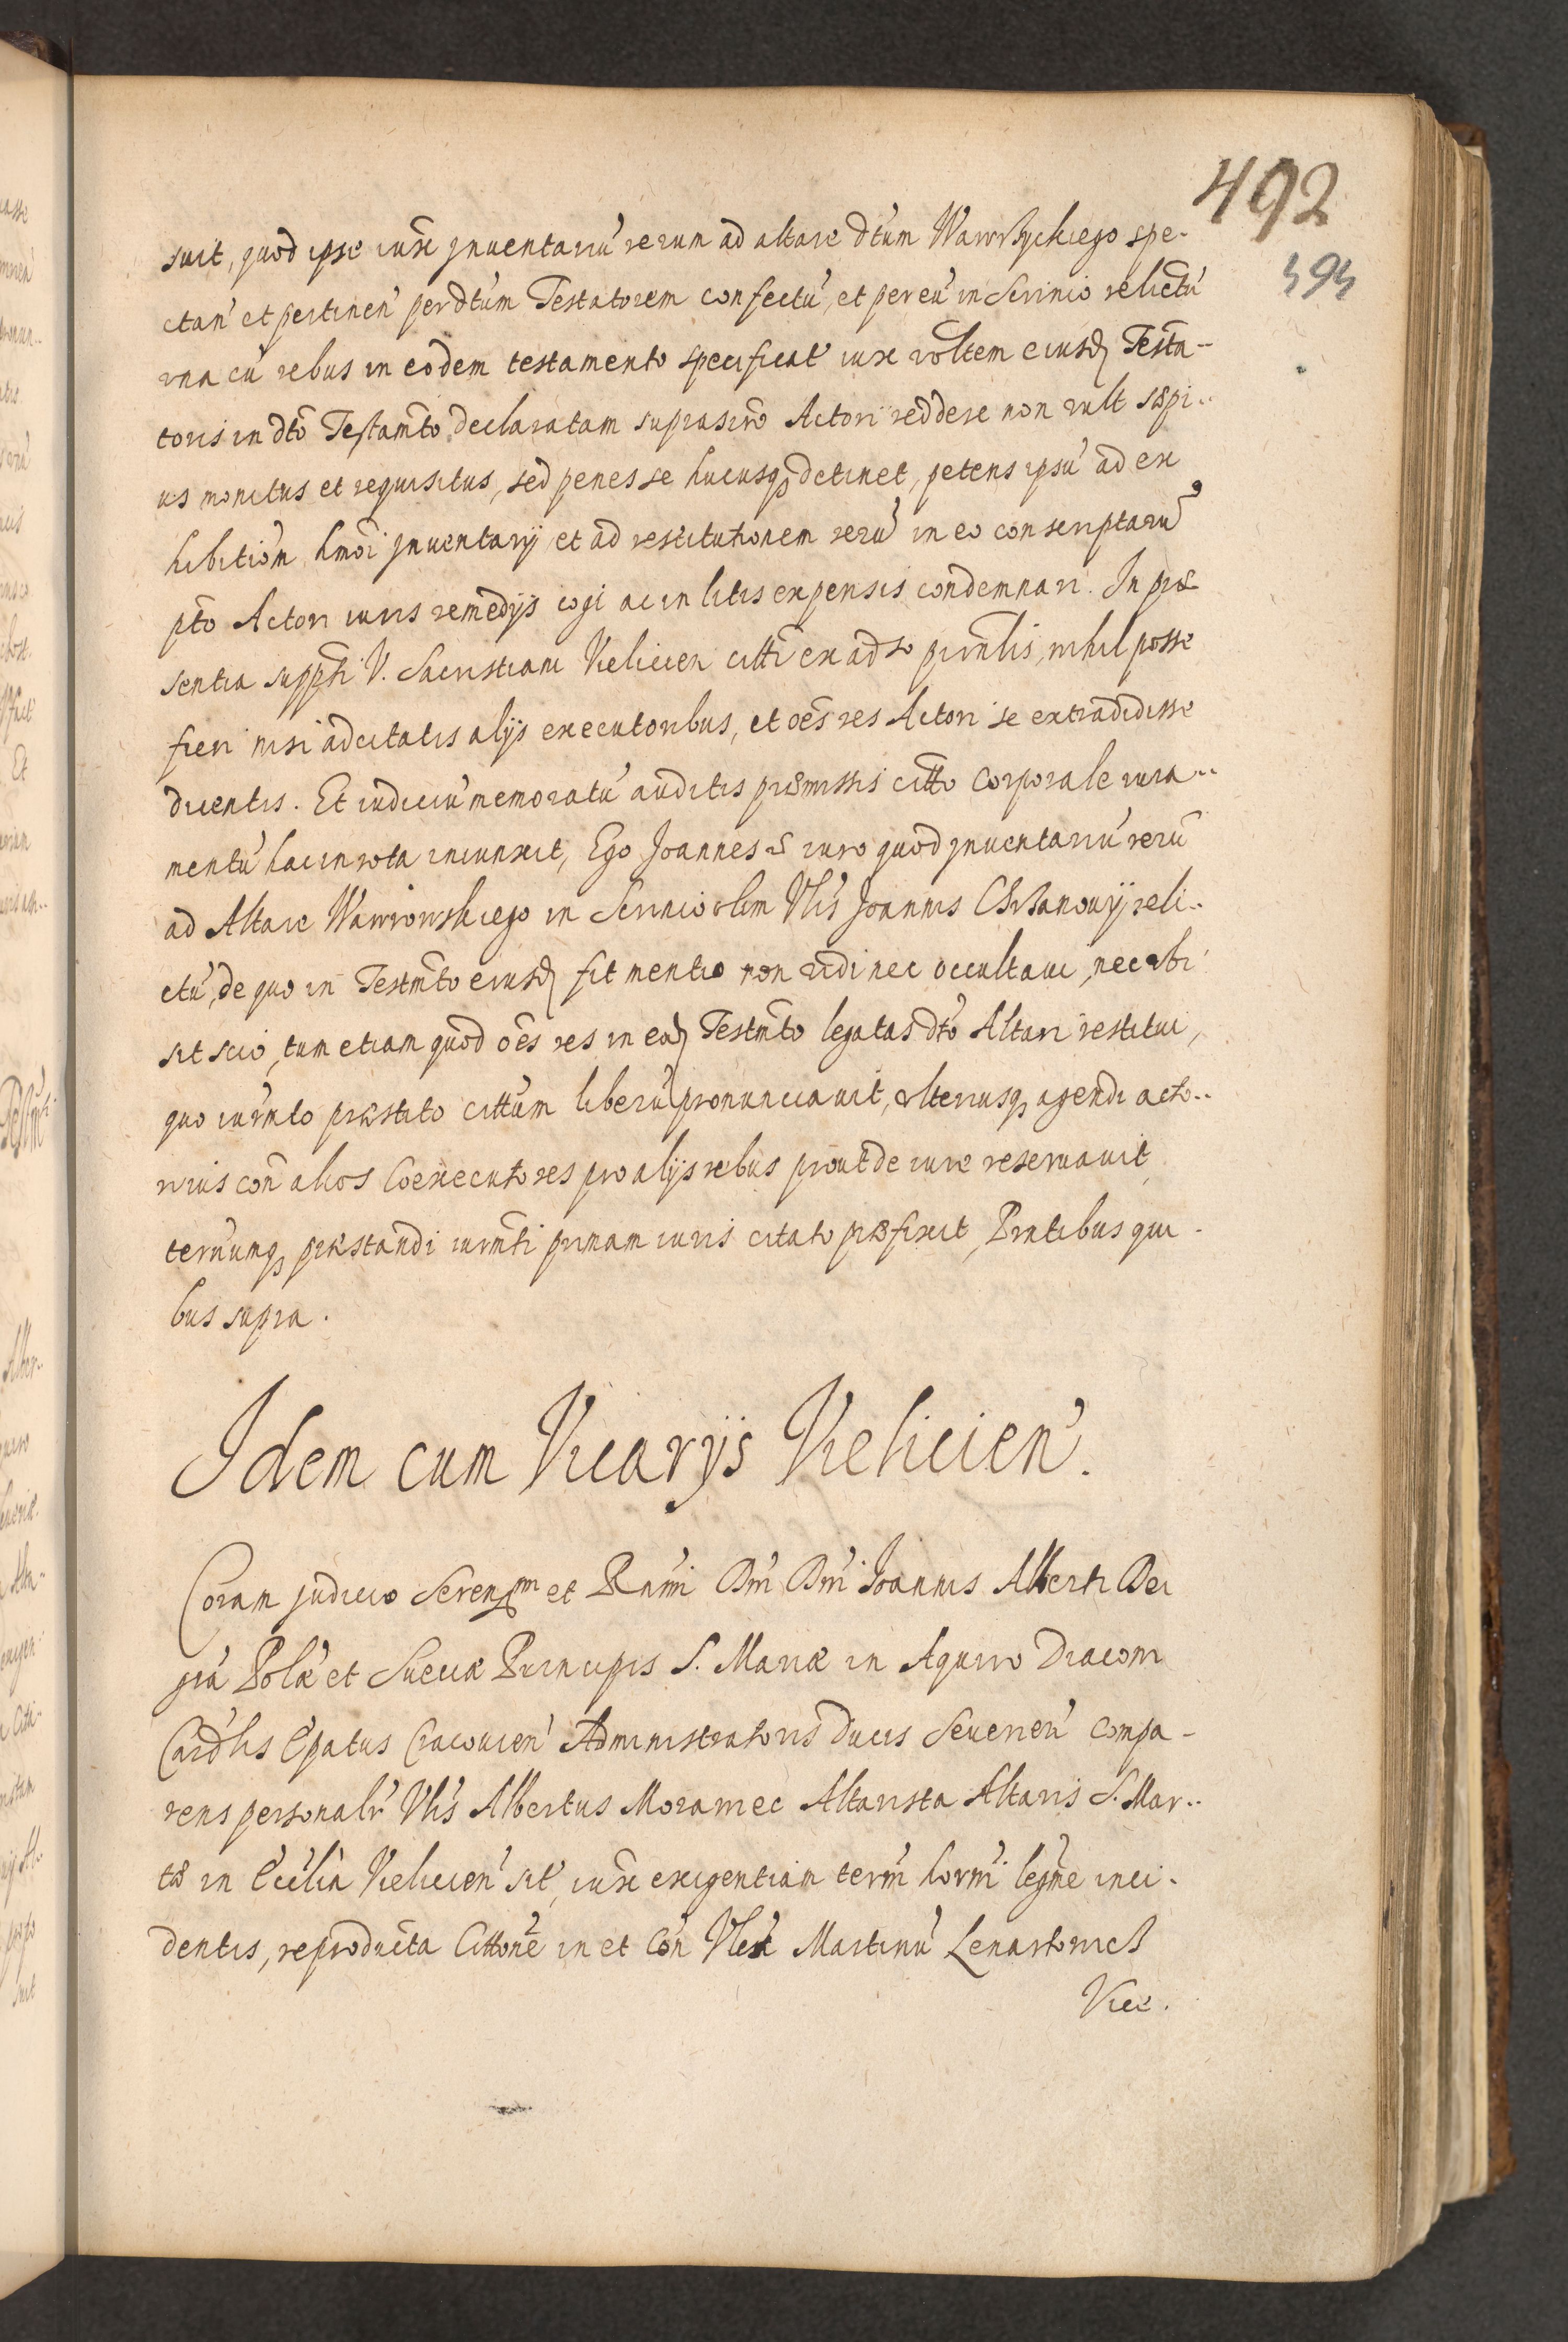 492
494
suit, quod ipse iuxe jnuentariu' rerum ad altare dtum Wawrzyckiego spe-
ctan' et pertinen' per dtum Testatorem confectu', et per eu' in Scrinio relictu'
vna cu' rebus in eodem testamento specificat' iuxe voltem eiusd Testa-
toris in dto Testamto declaratam suprascro Actori reddere non vult sæpi-
us monitus et requisitus, sed penes se hucusq detinet, petens ipsu' ad ex
hibition hmoi jnuentarij et ad restitutionem reru' in eo conscriptaru'
pto Actori iuris remedijs cogi ac in litis expensis condemnari. In præ
sentia supphi V. Sacristiani Vielicien citti ex adso pnmlis, nihil posse
fieri nisi adcitatis alijs executoribus, et oes res Actori se extradidisse
dicentis. Et iudiciu' memoratu' auditis præmissis citto corporale iura-
mentu' hac in rota iniunxit, Ego Joannes iuro quod jnuentariu' reru'
ad Altare Wawrowskiego in Scrinio olim Vlis Joannis Chrzanowij reli-
ctu', de quo in Testmto eiusd fit mentio non vidi nec occultaui, nec vbi
sit scio, tum etiam quod oes res in eod Testmto legatas dto Altari restitui,
quo iurmto præstito cittum liberu' pronunciauit, vlteriusq agendi acto-
ri ius con alios Coexecutores pro alijs rebus prout de iure reseruauit,
terminumq præstandi iurmti primam iuris citato præfixit, Pntibus qui-
bus supra.
Idem cum Vicarijs Vielicien'.
Coram judicio Sereniss et Rnmi Dni Dni Joannis Alberti Dei
gra' Polæ et Sueciæ Principis S. Mariæ in Aquiro Diaconi
Cardlis Epatus Cracouien' Administratoris Ducis Seuerien' compa-
rens personalr Vlis Albertus Morawiec Altarista Altaris S. Mar-
tæ in Ecclia Vielicien' sit', iuxe exigentiam term' horni legme inci-
dentis, reproducta Cittone in et con Vles Martinu' Lenartowicz
Vice.